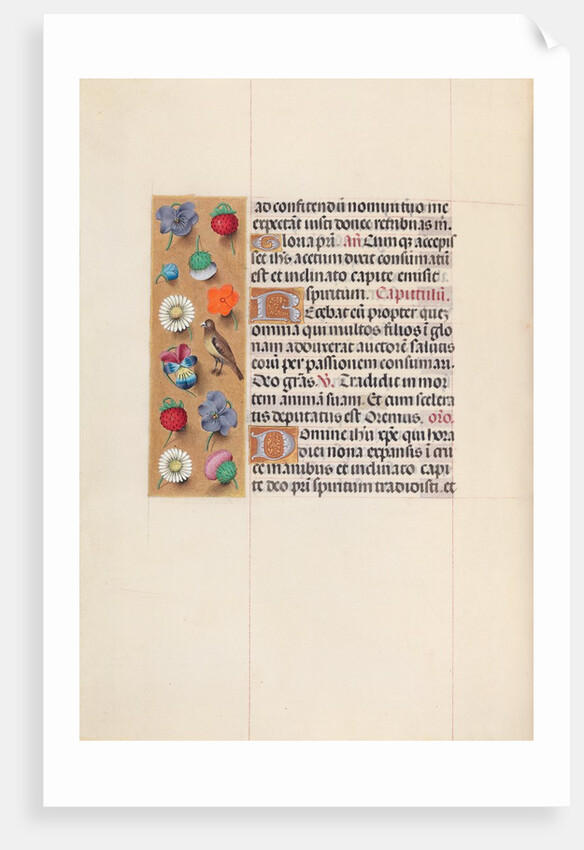 ad confitendū nomini tuo me
expectāt iusti donec retribuas m.
Gloria pr̄i. an̄. Cum q̄ accepis
set ih̄s acetum dixit consūmatū
est et inclinato capite emisit
spiritum. Capitulū.
Decebat eū propter quez
omnia qui multos filios ī glo
riam adduxerat auctorē salutis
eorū per passionem consumari.
Deo grās. V̄. Tradidit in mor
tem animā suam. Et cum scelera
tis deputatus est. Oremus. oro.
Domine ih̄u xp̄e qui hora
diei nona expansis ī cru
ce manibus et inclinato capi
te deo pr̄i spiritum tradidisti. et